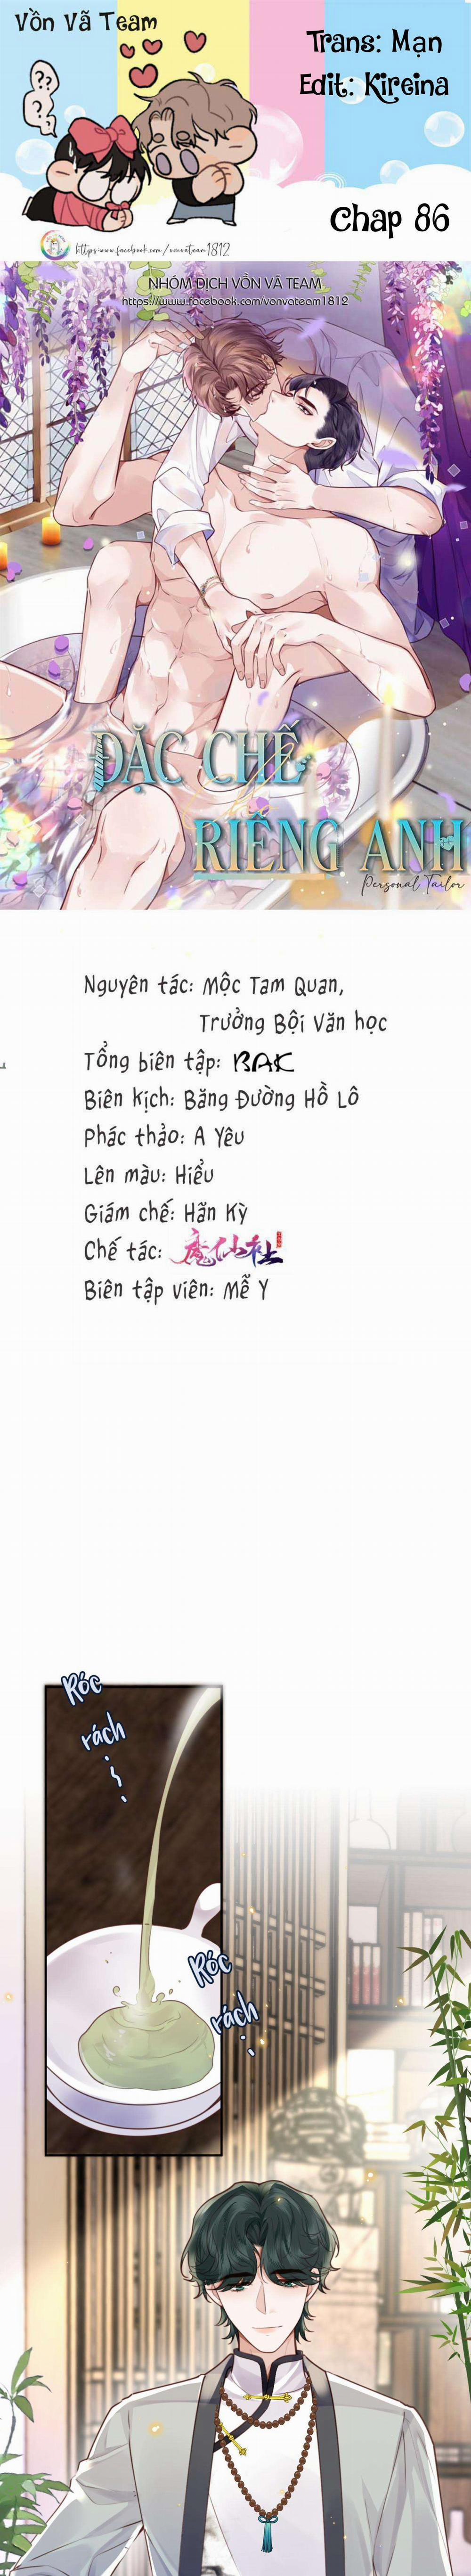 Vồn Vã Team
Trans: Mạn
Edit: Kireina
??
?
Chap 86
https://www.facebook.com/vonvateam1812
NHÓM DỊCH VỒN VÃ TEAM
https://www.facebook.com/vonvateam1812
ĐẶC CHẾ
RIÊNG ANH
Personal Tailor
Nguyên tác: Mộc Tam Quan,
Trưởng Bội Văn học
Tổng biên tập: BAK
Biên kịch: Băng Đường Hồ Lô
Phác thảo: A Yêu
Lên màu: Hiểu
Giám chế: Hãn Kỳ
Chế tác: 魔仙社
Biên tập viên: Mễ Y
Róc
rách
Róc
rách